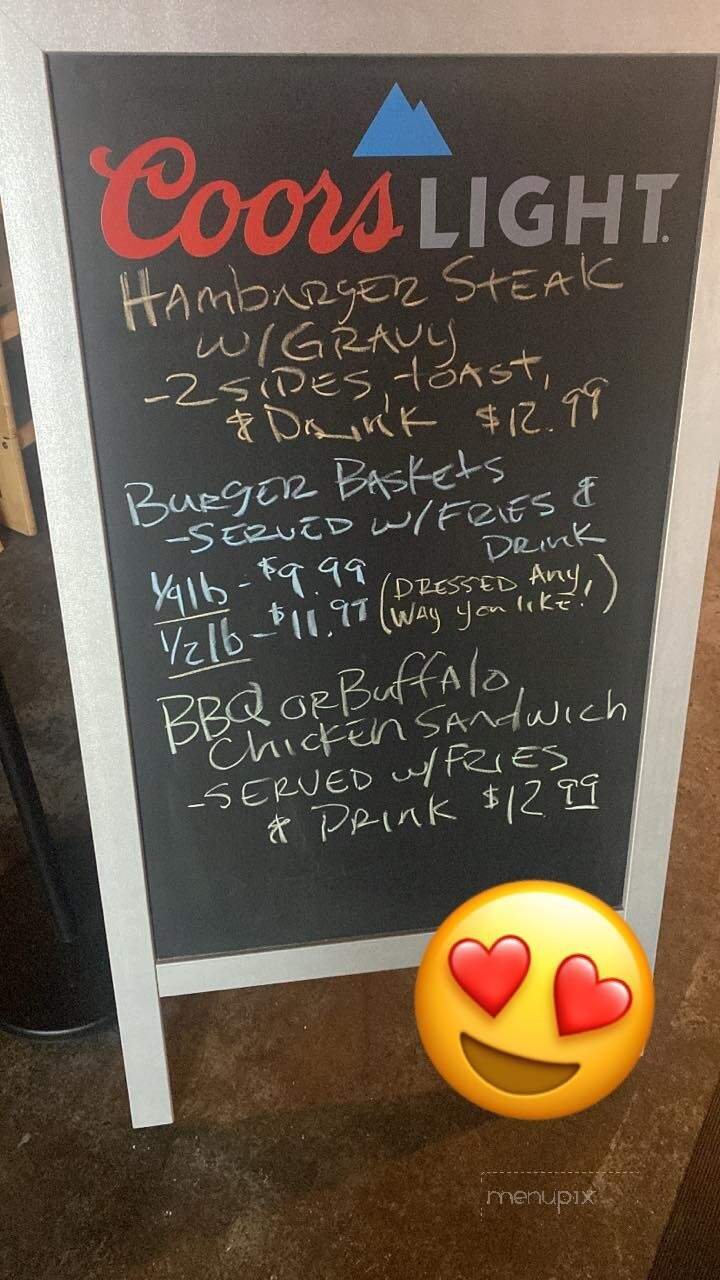 Coors LIGHT
HAmburgER StEAK
W/GRAVY
-2 SIDES, tOAST,
& DRINK $12.99
BURGER BASKEtS
-SERVED W/FRIES &
DRINK
1/4lb - $9.99 (DRESSED Any
1/2lb - $11.99 WAy you likE!)
BBQ OR BuffAlo
ChickEn SAndwich
-SERVED W/FRIES
& DRINK $12.99
menupix